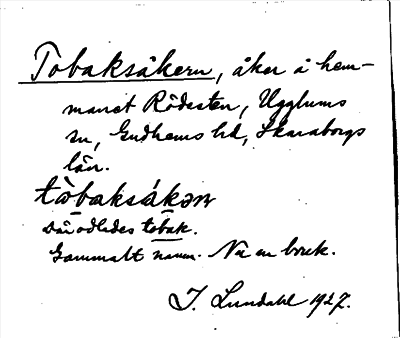 Tobaksåkern, åker å hem-
manet Rödesten, Ugglums
sn, Gudhems hd, Skaraborgs
län.
tòbaksákəɴ
Där odlades tobak.
Gammalt namn. Nu en
I. Lundahl 1927.